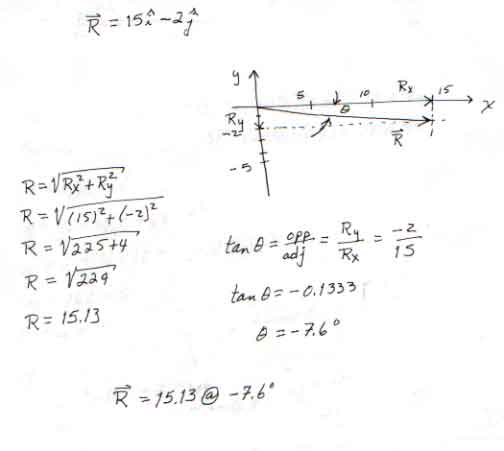 R⃗ = 15î − 2ĵ
y
5 10 Rx 15
x
θ
Ry
−2
R⃗
−5
R = √(Rx² + Ry²)
R = √((15)² + (−2)²)
R = √(225 + 4)
R = √229
R = 15.13
tan θ = opp/adj = Ry/Rx = −2/15
tan θ = −0.1333
θ = −7.6°
R⃗ = 15.13 @ −7.6°